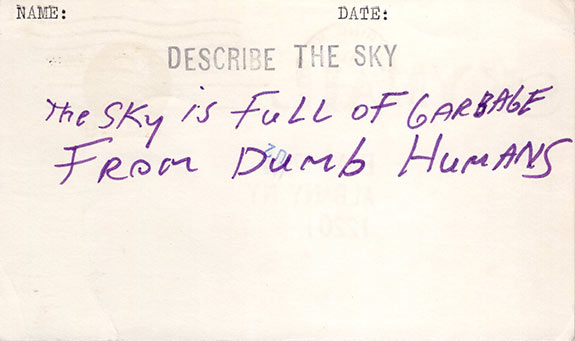 NAME: DATE:
DESCRIBE THE SKY
THE SKY is FULL OF GARBAGE
FROM DUMB HUMANS